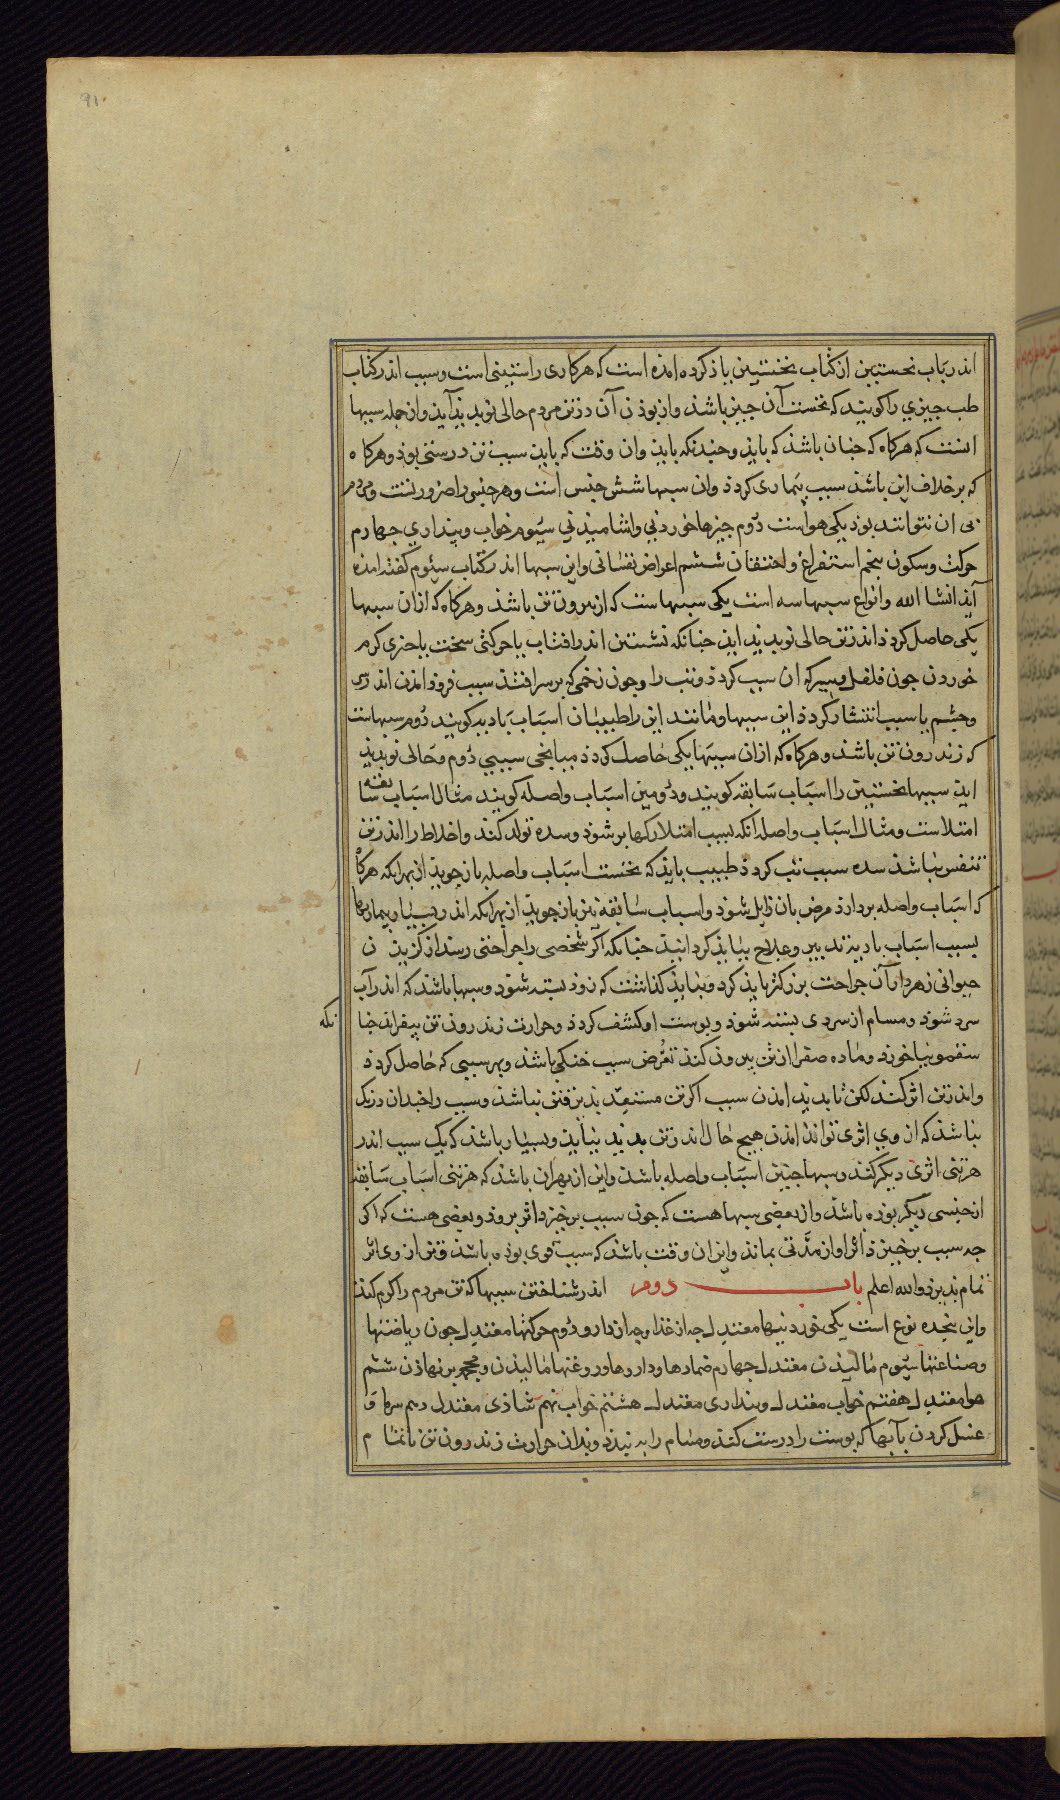 91
اندر باب نخستین از کتاب نخستین یاذ کرده امده است که هر کاری را سببی است و سبب اندر کتاب
طب چیزی را کویند که نخست آن چیز باشذ و از بوذن آن در تن مردم حالی نو بدیذ آید و از جمله سببها
انست که هرکاه که جنان باشذ که بایذ و جندانکه بایذ و ان وقت که بایذ سبب تن درستی بوذ و هرکاه
که بر خلاف این باشذ سبب بیماری کردذ و ان سببها شش جنس است و هر جنسی را ضرورتست و مردم
بی ان نتوانند بوذ یکی هواست دوم جیزها خوردنی و اشامیدنی سیوم خواب و بیداری جهارم
حرکت و سکون بنجم استفراغ و احتقان ششم اعراض نفسانی و این سببها اندر کتاب سیوم کفته امده
آید انشا الله و انواع سببها سه است یکی سببهاست که از بیرون تن باشذ و هرکاه که ازان سببها
یکی حاصل کردذ اندر تن حالی نو بدیذ ایذ جنانکه نشستن اندر افتاب یا حرکتی سخت یا جیزی کرم
خوردن جون فلفل و سیر که ان سبب کردذ مرتب را و جون زخمی که بر سر افتد سبب فروذ امدن اندر
و جشم یا سبب انتشار کردذ این سببها و مانند این را طبیبان اسباب بادیه کویند دوم سببهاست
که زندرون تن باشذ و هرکاه که ازان سببها یکی حاصل کردذ میانجی سببی دوم و حالی نو بدیذ
ایذ سببها نخستین را اسباب سابقه کویند و دومین اسباب واصله کویند مثال اسباب سابقه
امتلاست و مثال اسباب واصله انکه بسبب امتلا رکها بر شوذ و سده تولد کند و اخلاط را اندر تن
تنفس نباشذ سده سبب تب کردذ طبیب بایذ که نخست اسباب واصله باز جوید از بهر انکه هرکاه
که اسباب واصله بردارذ مرض بان زایل شوذ و اسباب سابقه نیز باز جوید از بهر انکه اندر بسیار بیماریها
بسبب اسباب بادیه تدبیر و علاج بباید کردانید جنانکه اکر شخصی را جراحتی رسد از کزیدن
حیوانی زهردار آن جراحت بزرکتر باید کرد و نباید کذاشت که زوذ بسته شوذ و سببها باشذ که اندر آب
سرد شوذ و مسام از سردی بسته شوذ و بوست او کشف کردذ و حرارت زندرون تن بیفزاید جنا
نکه
سقمونیا خورد و ماده صفرا از تن بیرون کند تعرض سبب خنکی باشذ و بهر سببی که حاصل کردذ
و اندر تن اثر کند لکن تا بدید امدن سبب اکر تن مستعد بذیرفتن نباشذ و سبب را جندان درنک
نباشذ که از وی اثری تواند امدن هیج حال اندر تن بدید نیاید و بسیار باشذ که یک سبب اندر
هر تنی اثری دیکر کند و سببها جنین اسباب واصله باشذ و این از بهر ان باشذ که هر تنی اسباب سابقه
از جنسی دیکر بوذه باشذ و از بعضی سببها هست که جون سبب برخیزد اثر بروذ و بعضی هست که اکر
جه سبب برخیزذ اثر او از مدتی بماند و این ان وقت باشذ که سبب قوی بوذه باشذ و تن از وی اثر
تمام بذیرذ والله اعلم باب دوم اندر شناختن سببها که تن مردم را کرم کند
و این بنجده نوع است یکی خوردنیها معتدل جه از غذا و جه از دارو دوم حرکتها معتدل جون ریاضتها
و صناعتها سیوم مالیدن معتدل جهارم ضمادها و داروها و روغنها مالیدن و محجمه بر نهاذن ششم
هوا معتدل هفتم خواب معتدل و بیداری معتدل هشتم خواب نهم شاذی معتدل دهم سرما و
غسل کردن بآبها که بوست را درست کند و مسام را ببندذ و بدان حرارت زندرون تن با تمام